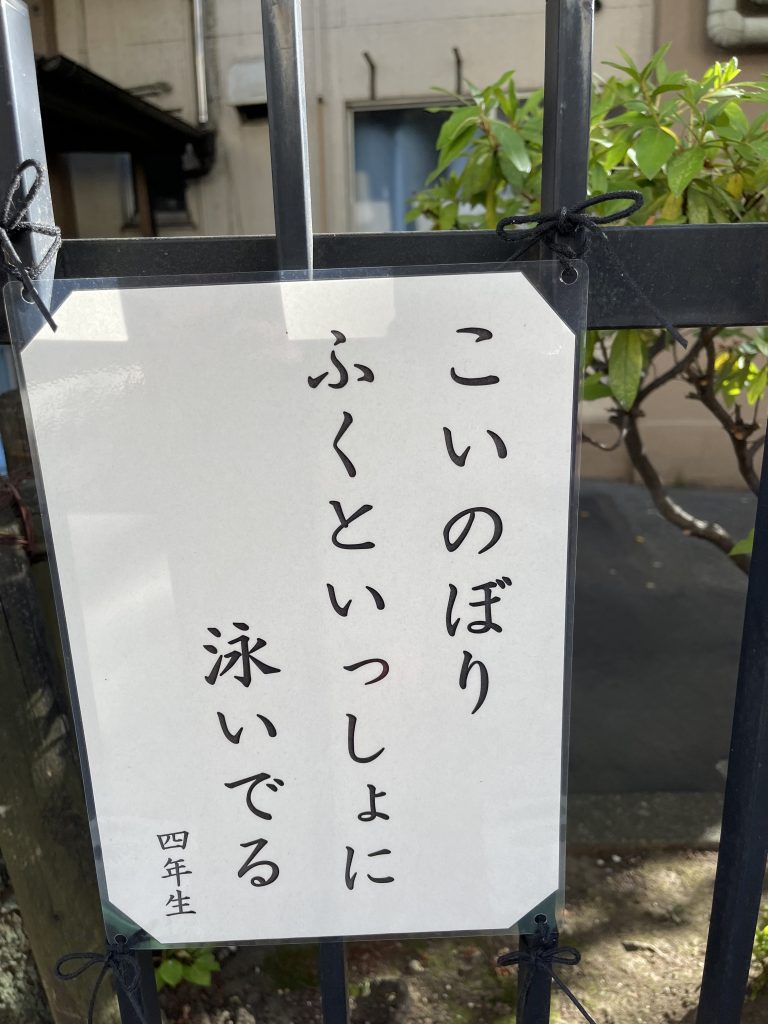 こいのぼり
ふくといっしょに
泳いでる
四年生